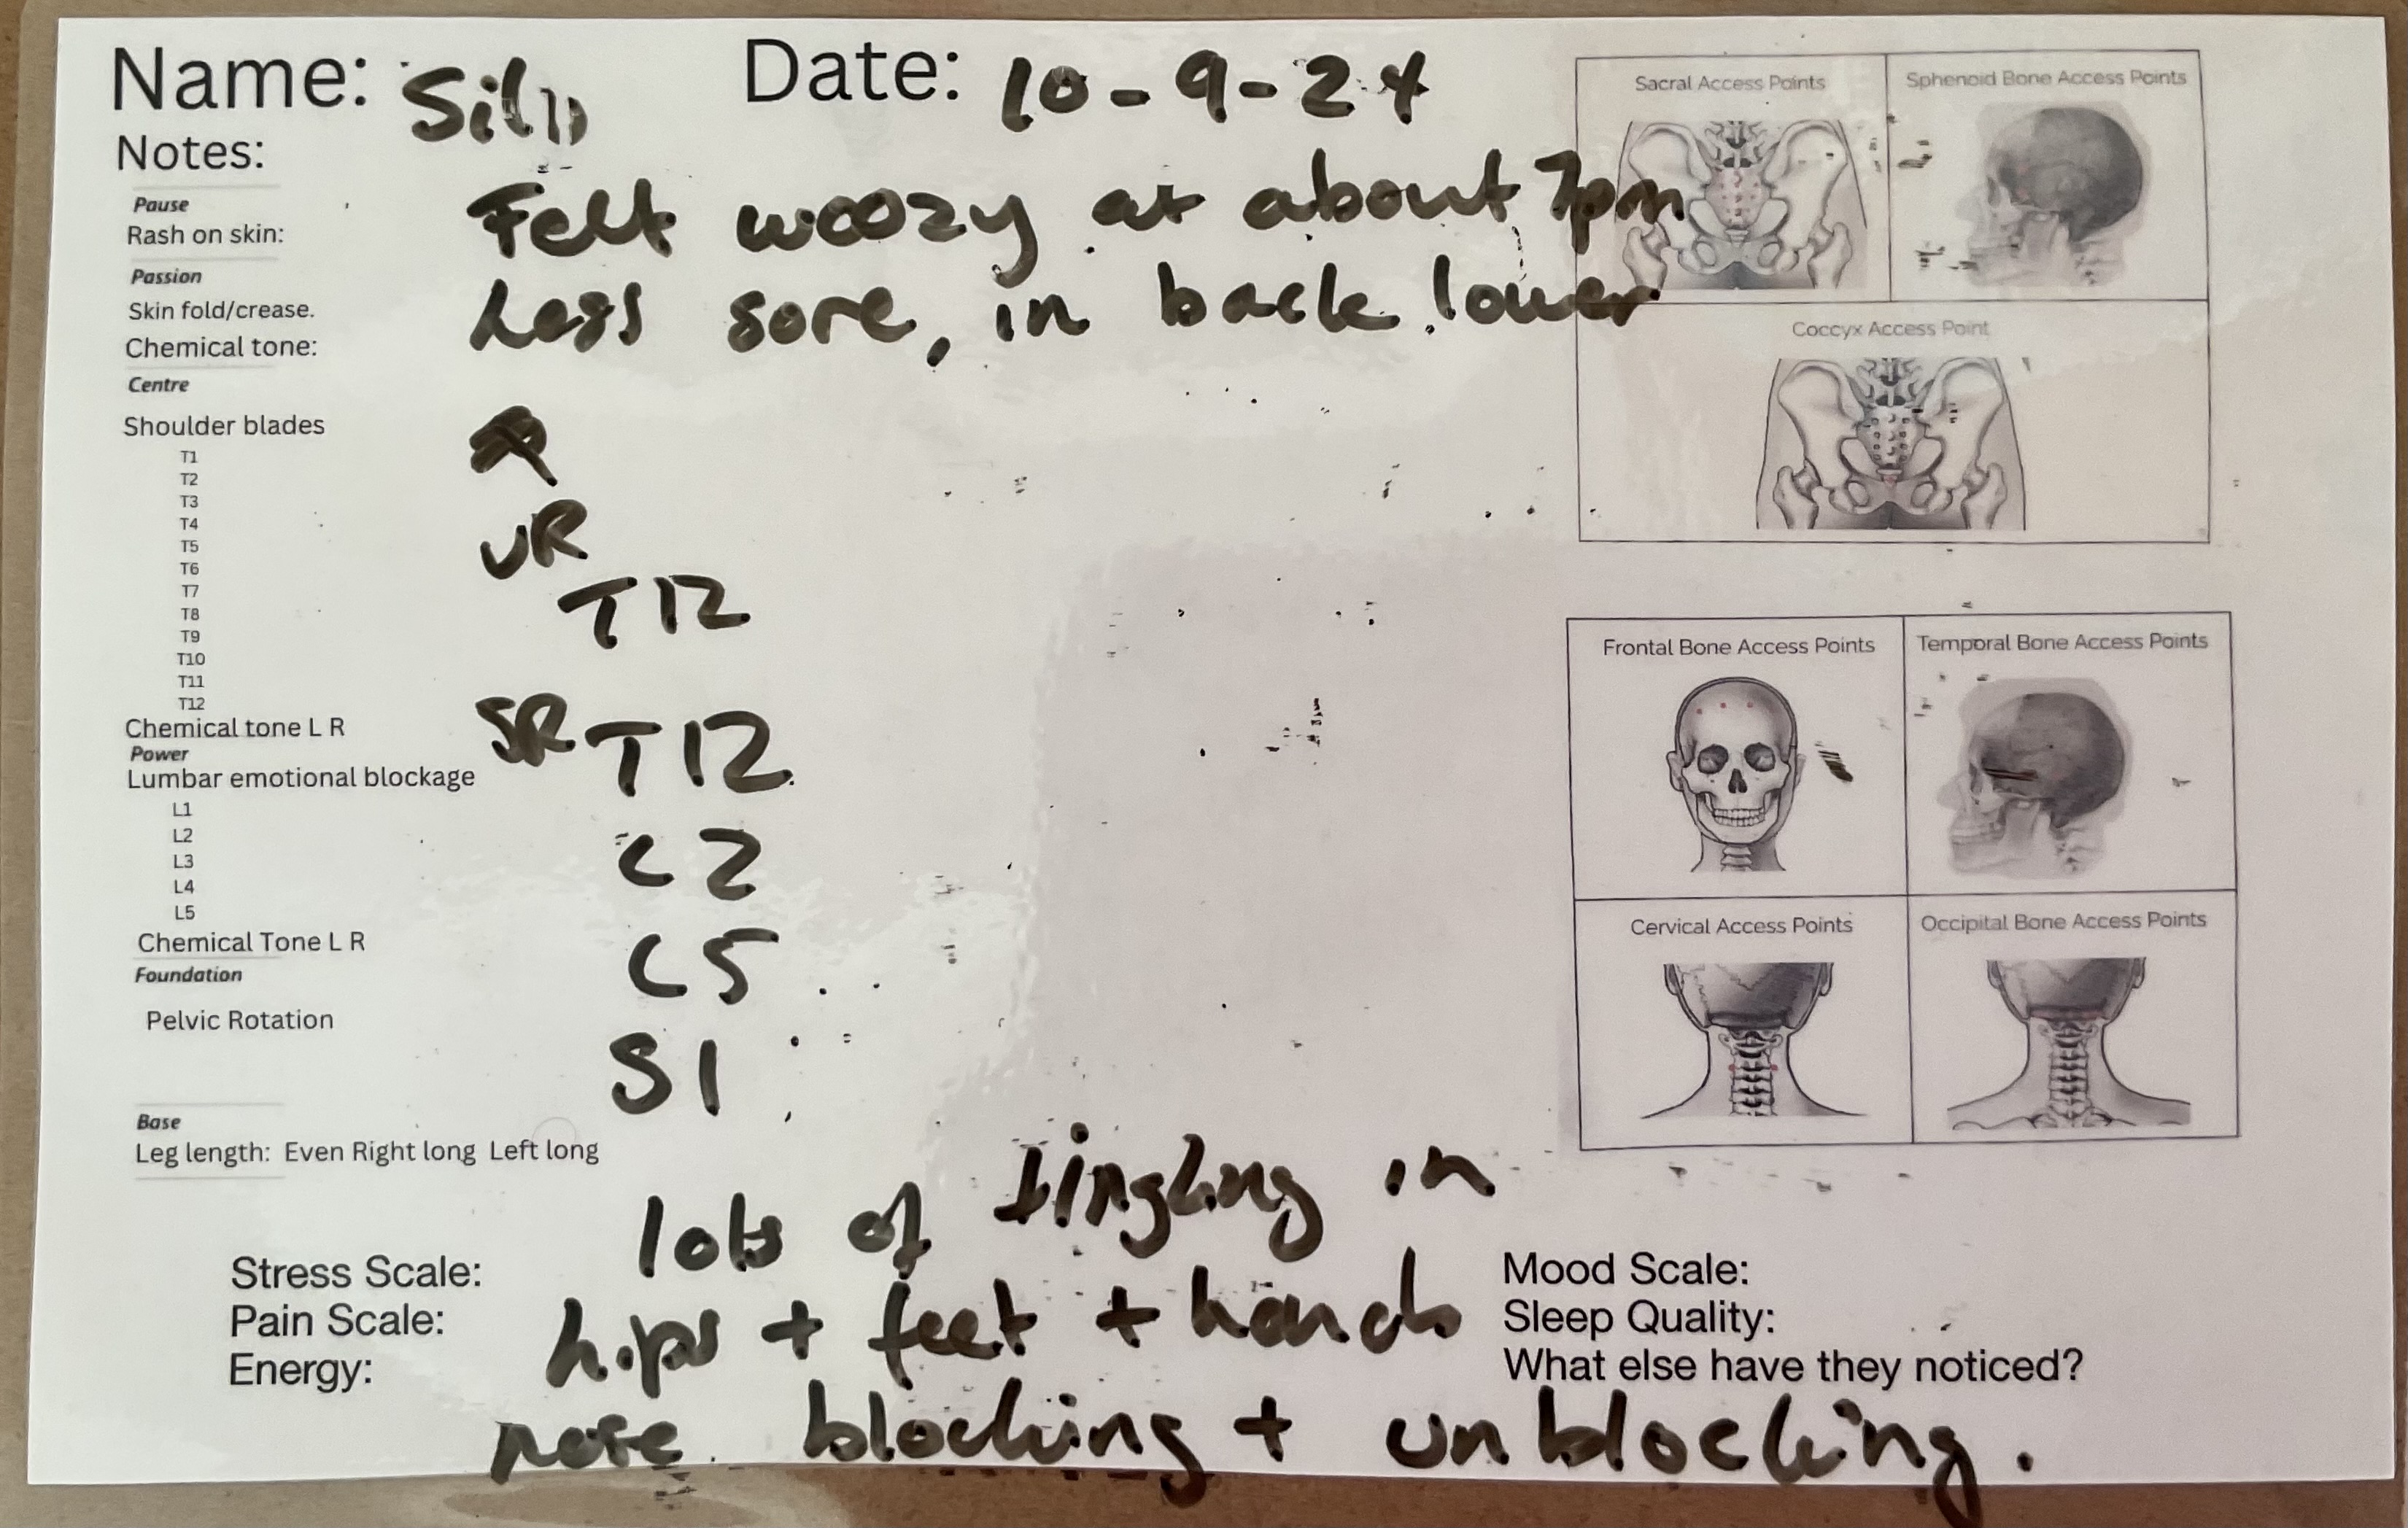 Name: Date: 10-9-24
Notes:
Felt woozy at about 7pm
Less sore, in back lower
Pause
Rash on skin:
Passion
Skin fold/crease.
Chemical tone:
Centre
Shoulder blades
T1
T2
T3
T4
T5
T6
T7
T8
T9
T10
T11
T12
UR
T12
Chemical tone L R
SR T12
Power
Lumbar emotional blockage
L1
L2
L3
L4
L5
C2
C5
Chemical Tone L R
Foundation
Pelvic Rotation
S1
Base
Leg length: Even Right long Left long
lots of tingling in
hips + feet + hands
nose blocking + unblocking.
Stress Scale:
Pain Scale:
Energy:
Mood Scale:
Sleep Quality:
What else have they noticed?
Sacral Access Points
Sphenoid Bone Access Points
Coccyx Access Point
Frontal Bone Access Points
Temporal Bone Access Points
Cervical Access Points
Occipital Bone Access Points